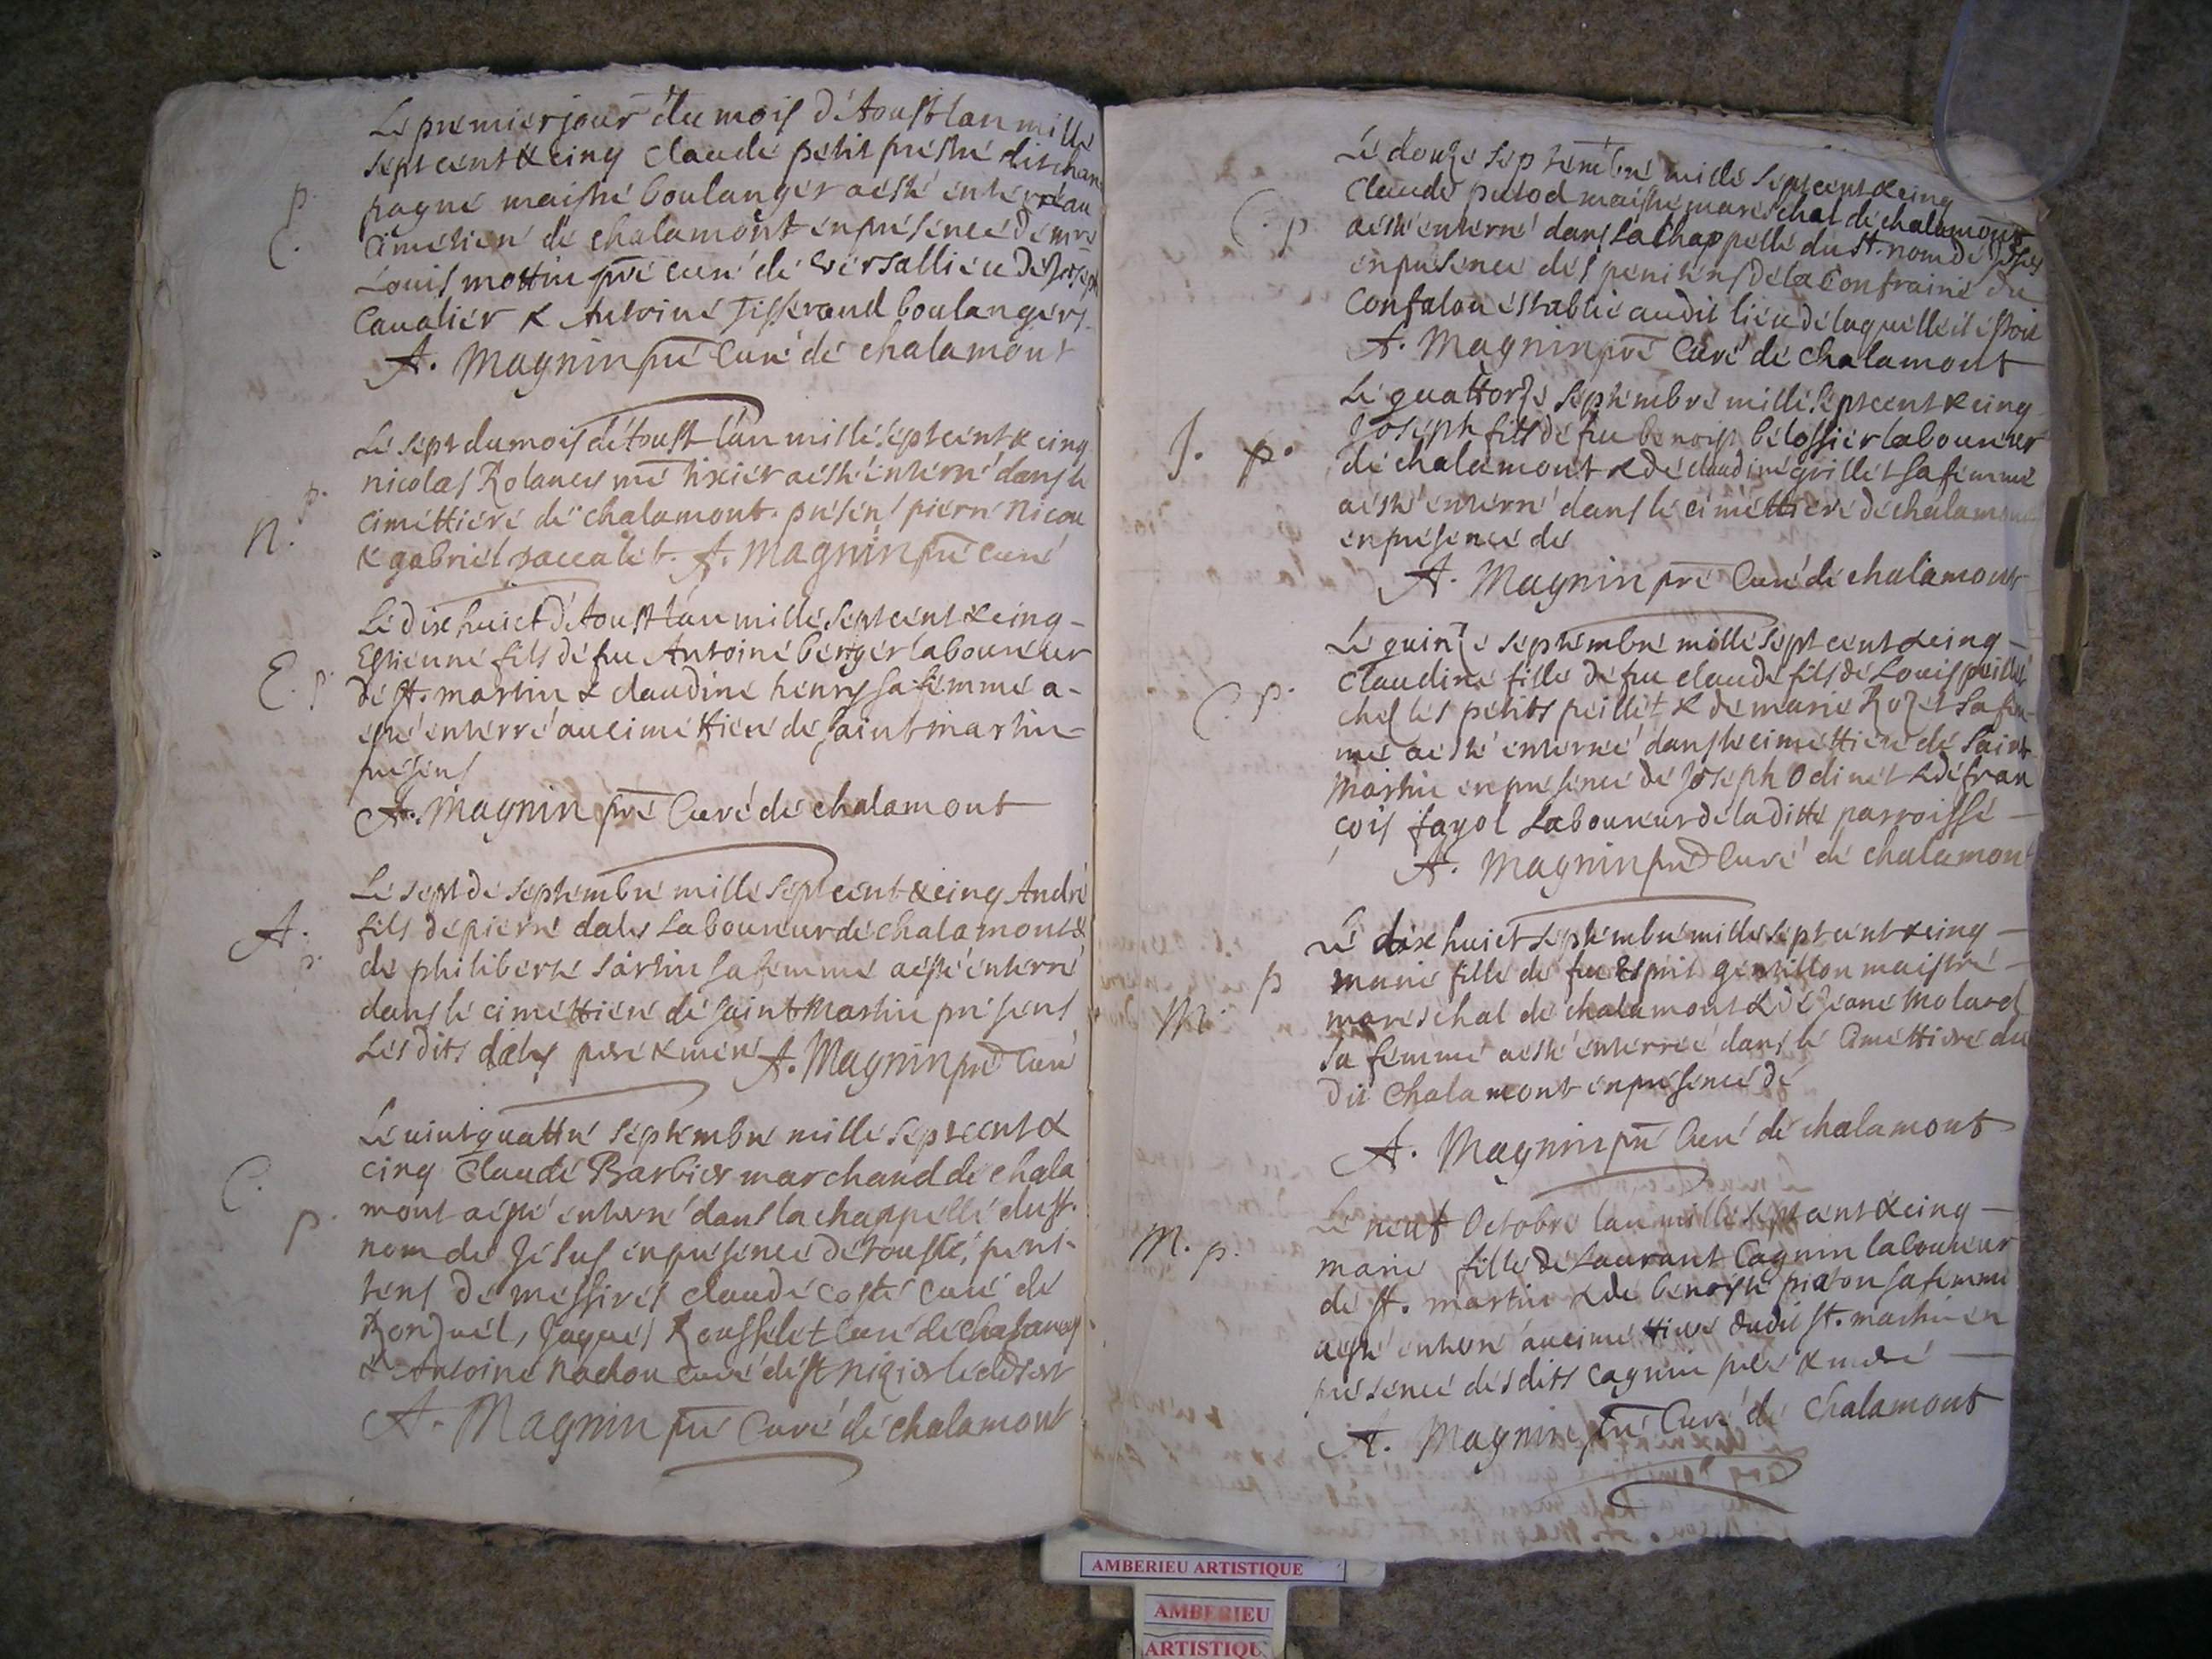 Le premier jour du mois d'Aoust lan mille
sept cent & cinq Claude petit prestre dit cham
p. pagne maistre boulanger a esté enterré au
C. Cimetiere de chalamont en presence de mre
Louis mottin pre curé de versallieu de Joseph
Cavalier & Antoine Tisserand boulangers
A. Magnin pre Curé de chalamont
Le sept du mois d'Aoust l'an mille sept cent & cinq
p. nicolas Rolancy me tixier a esté enterré dans le
N. cimettiere de chalamont. présen! pierre Nicou
& gabriel A. Magnin pre curé
Le dix huict d'Aoust l'an mille sept cent & cinq -
Estienne fils de feu Antoine berger laboureur
E. p. de st. martin & claudine henry sa femme a -
esté enterré au cimettiere de saint martin -
présens
A. Magnin pre Curé de chalamont
Le sept de septembre mille sept cent & cinq André
A. fils de pierre dalis laboureur de chalamont &
p. de philiberte sa femme a esté enterré
dans le cimettiere de saint Martin présens
Les dits dalis pere & mere A. Magnin pre Curé
Le vint quattre septembre mille sept cent &
C. cinq Claude Barbier marchand de chala
p. mont a esté enterré dans la chappelle du st.
nom de Jesus en presence de touste, peni-
tens de messires claude coste curé de
Ronzuel, Jaques Rousselet Curé de
& Antoine nachon curé de st nizier le desert
A. Magnin pre Curé de chalamont
Le douze septembre mille sept cent & cinq
Claude putod maistre mareschal de chalamont
C. p. a esté enterré dans la Chappelle du st. nom de Jesus
en presence des penitens de la Confrairie du
Confalon establie audit lieu de laquelle il estoit
A. Magnin pre Curé de Chalamont
Le quattorze septembre mille sept cent & cinq
Joseph fils de feu benoist belossier laboureur
J. p. de chalamont & de claudine grillet sa femme
a esté enterré dans le cimettiere de chalamont
en presence de
A. Magnin pre Curé de chalamont
Le quinze septembre mille sept cent & cinq -
Claudine fille de feu claude fils de Louis peillet
C. p. chez les petits peillet & de marie Rozet sa fem-
me a esté enterrée dans le cimettiere de saint
Martin en presence de Joseph Odinet & de fran
çois fayol Laboureurs de laditte parroisse -
A. Magnin pre Curé de chalamont
Le dix huict septembre mille sept cent & cinq -
p marie fille de feu Esprit gentillon maistre -
M. mareschal de chalamont & de Jeane Molard
sa femme a esté enterrée dans le Cimettiere du
dit Chalamont en presence de
A. Magnin pre Curé de chalamont
Le neuf Octobre l'an mille sept cent & cinq -
M. p. marie fille de Laurant Cagnin laboureur
de st. martin & de benoiste piaton sa femme
a esté enterré au cimettiere dudit st. martin en
presence desdits cagnin pere & mere -
A. Magnin pre Curé de Chalamont
AMBERIEU ARTISTIQUE
AMBERIEU
ARTISTIQU